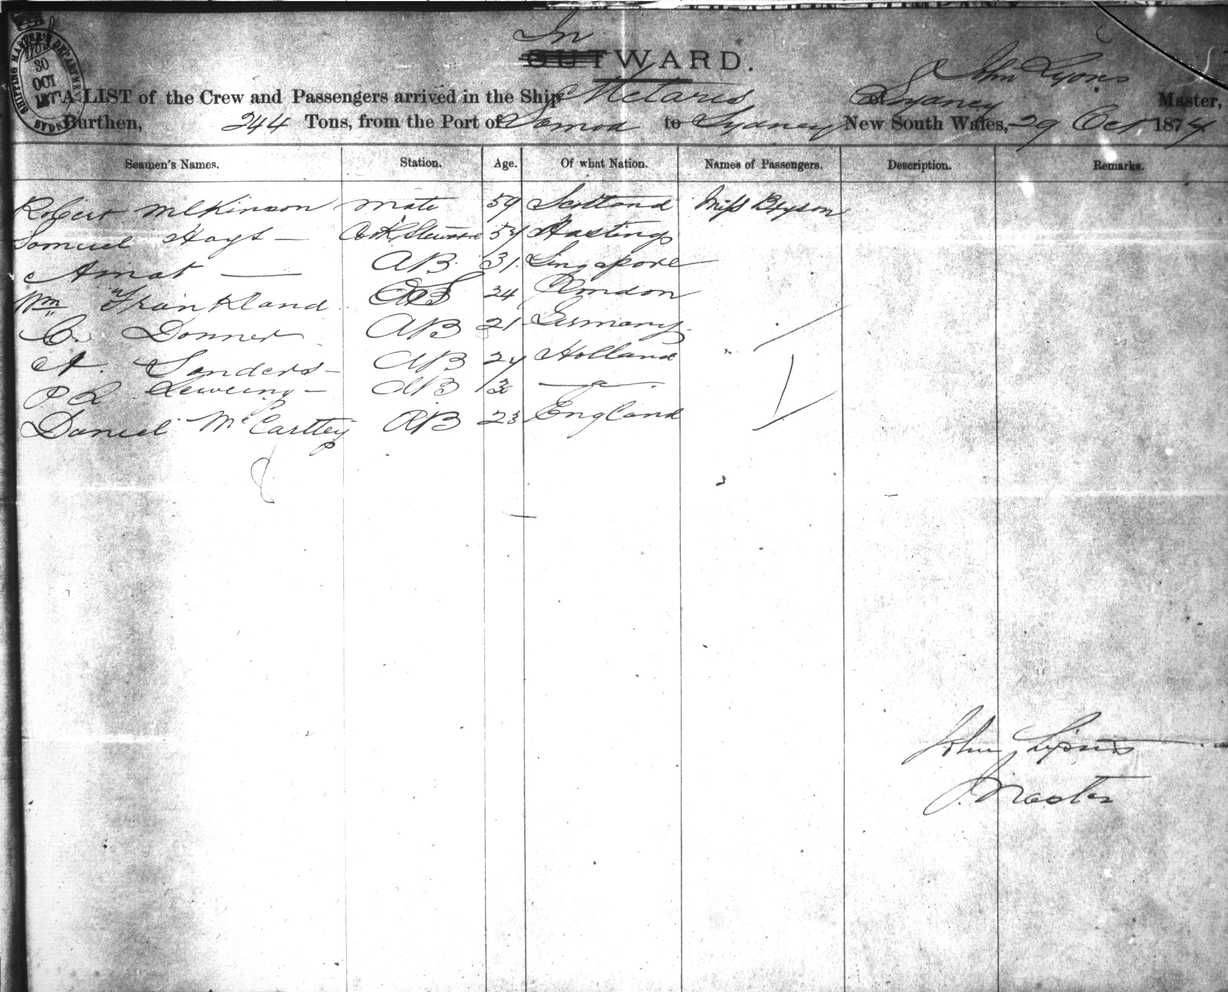 In
OUTWARD.
SHIPPING MASTER'S DEPARTMENT
30
OCT
SYDNEY
John Lyons
A LIST of the Crew and Passengers arrived in the Ship Metaris of Sydney Master,
Burthen, 244 Tons, from the Port of Samoa to Sydney New South Wales, 29 Oct 1874
Seamen's Names. Station. Age. Of what Nation. Names of Passengers. Description. Remarks.
Robert McKinson mate 59 Scotland Miss Bryson
Samuel Hoyt — Steward 54 Hastings
Amat — AB 31 Singapore
Wm Frankland OS 24 London
C. Donner AB 21 Germany
A. Sanders — AB 24 Holland
P L AB
Daniel McCarttey AB 23 England
John Lyons
Master